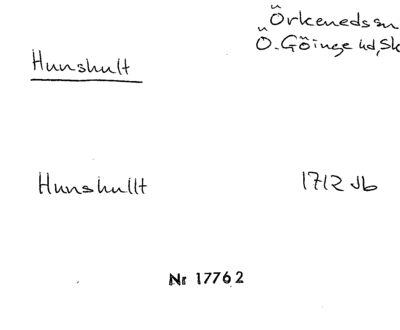 Örkeneds sn
Ö. Göinge hd, Sk
Hunshult
Hunshullt 1712 Jb
Nr 17762